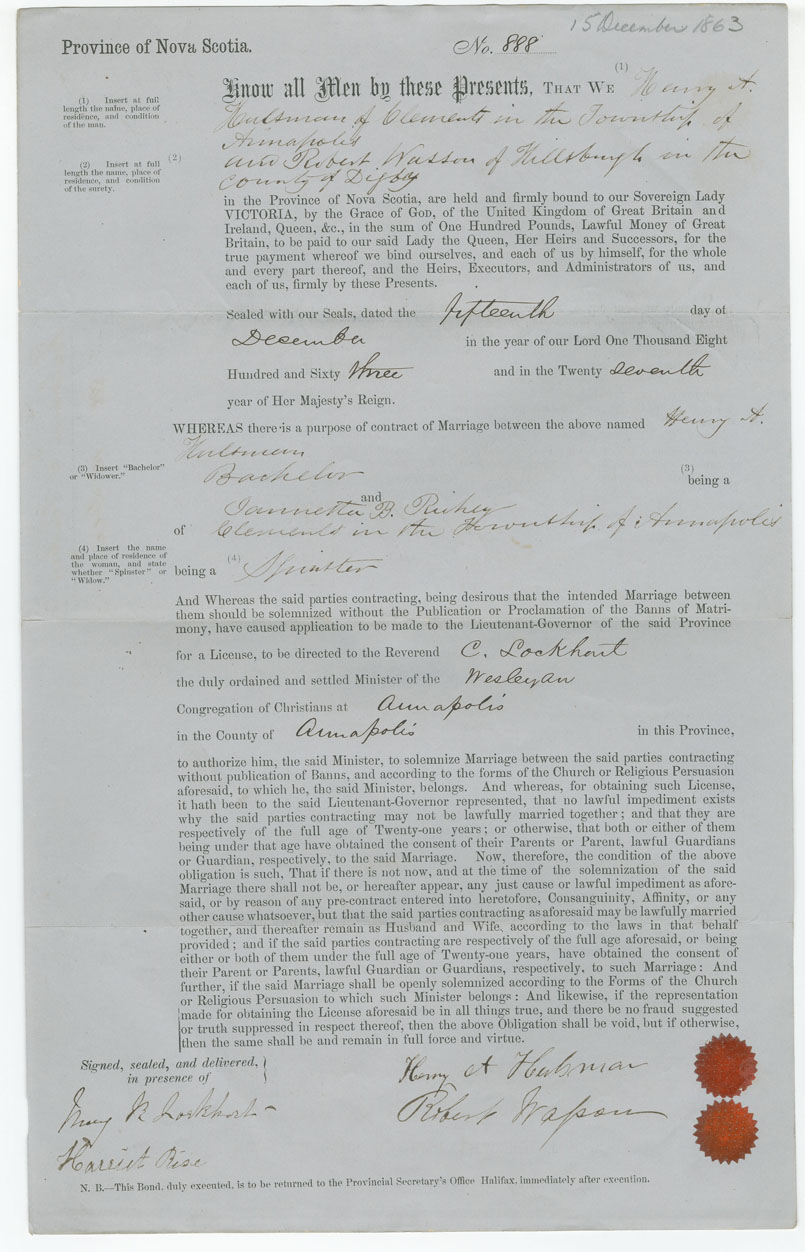 15 December 1863
Province of Nova Scotia.
No. 888
(1)
Know all Men by these Presents, THAT WE Henry A.
(1) Insert at full length the name, place of residence, and condition of the man.
Hulsman of Clements in the Township of
Annapolis
(2)
and Robert Wasson of Hillsburgh in the
(2) Insert at full length the name, place of residence, and condition of the surety.
County of Digby
in the Province of Nova Scotia, are held and firmly bound to our Sovereign Lady
VICTORIA, by the Grace of GOD, of the United Kingdom of Great Britain and
Ireland, Queen, &c., in the sum of One Hundred Pounds, Lawful Money of Great
Britain, to be paid to our said Lady the Queen, Her Heirs and Successors, for the
true payment whereof we bind ourselves, and each of us by himself, for the whole
and every part thereof, and the Heirs, Executors, and Administrators of us, and
each of us, firmly by these Presents.
Sealed with our Seals, dated the fifteenth day of
December in the year of our Lord One Thousand Eight
Hundred and Sixty three and in the Twenty seventh
year of Her Majesty's Reign.
WHEREAS there is a purpose of contract of Marriage between the above named Henry A.
Hulsman
(3) Insert "Bachelor" or "Widower."
(3)
Bachelor being a
and
Jannetta B. Richey
of Clements in the Township of Annapolis
(4) Insert the name and place of residence of the woman, and state whether "Spinster" or "Widow."
(4)
being a Spinster
And Whereas the said parties contracting, being desirous that the intended Marriage between
them should be solemnized without the Publication or Proclamation of the Banns of Matri-
mony, have caused application to be made to the Lieutenant-Governor of the said Province
for a License, to be directed to the Reverend C. Lockhart
the duly ordained and settled Minister of the Wesleyan
Congregation of Christians at Annapolis
in the County of Annapolis in this Province,
to authorize him, the said Minister, to solemnize Marriage between the said parties contracting
without publication of Banns, and according to the forms of the Church or Religious Persuasion
aforesaid, to which he, the said Minister, belongs. And whereas, for obtaining such License,
it hath been to the said Lieutenant-Governor represented, that no lawful impediment exists
why the said parties contracting may not be lawfully married together; and that they are
respectively of the full age of Twenty-one years; or otherwise, that both or either of them
being under that age have obtained the consent of their Parents or Parent, lawful Guardians
or Guardian, respectively, to the said Marriage. Now, therefore, the condition of the above
obligation is such, That if there is not now, and at the time of the solemnization of the said
Marriage there shall not be, or hereafter appear, any just cause or lawful impediment as afore-
said, or by reason of any pre-contract entered into heretofore, Consanguinity, Affinity, or any
other cause whatsoever, but that the said parties contracting as aforesaid may be lawfully married
together, and thereafter remain as Husband and Wife, according to the laws in that behalf
provided; and if the said parties contracting are respectively of the full age aforesaid, or being
either or both of them under the full age of Twenty-one years, have obtained the consent of
their Parent or Parents, lawful Guardian or Guardians, respectively, to such Marriage: And
further, if the said Marriage shall be openly solemnized according to the Forms of the Church
or Religious Persuasion to which such Minister belongs: And likewise, if the representation
made for obtaining the License aforesaid be in all things true, and there be no fraud suggested
or truth suppressed in respect thereof, then the above Obligation shall be void, but if otherwise,
then the same shall be and remain in full force and virtue.
Signed, sealed, and delivered,
in presence of
Henry A Hulsman
Mary R Lockhart
Robert Wasson
Harriet Rise
N. B.—This Bond, duly executed, is to be returned to the Provincial Secretary's Office Halifax, immediately after execution.